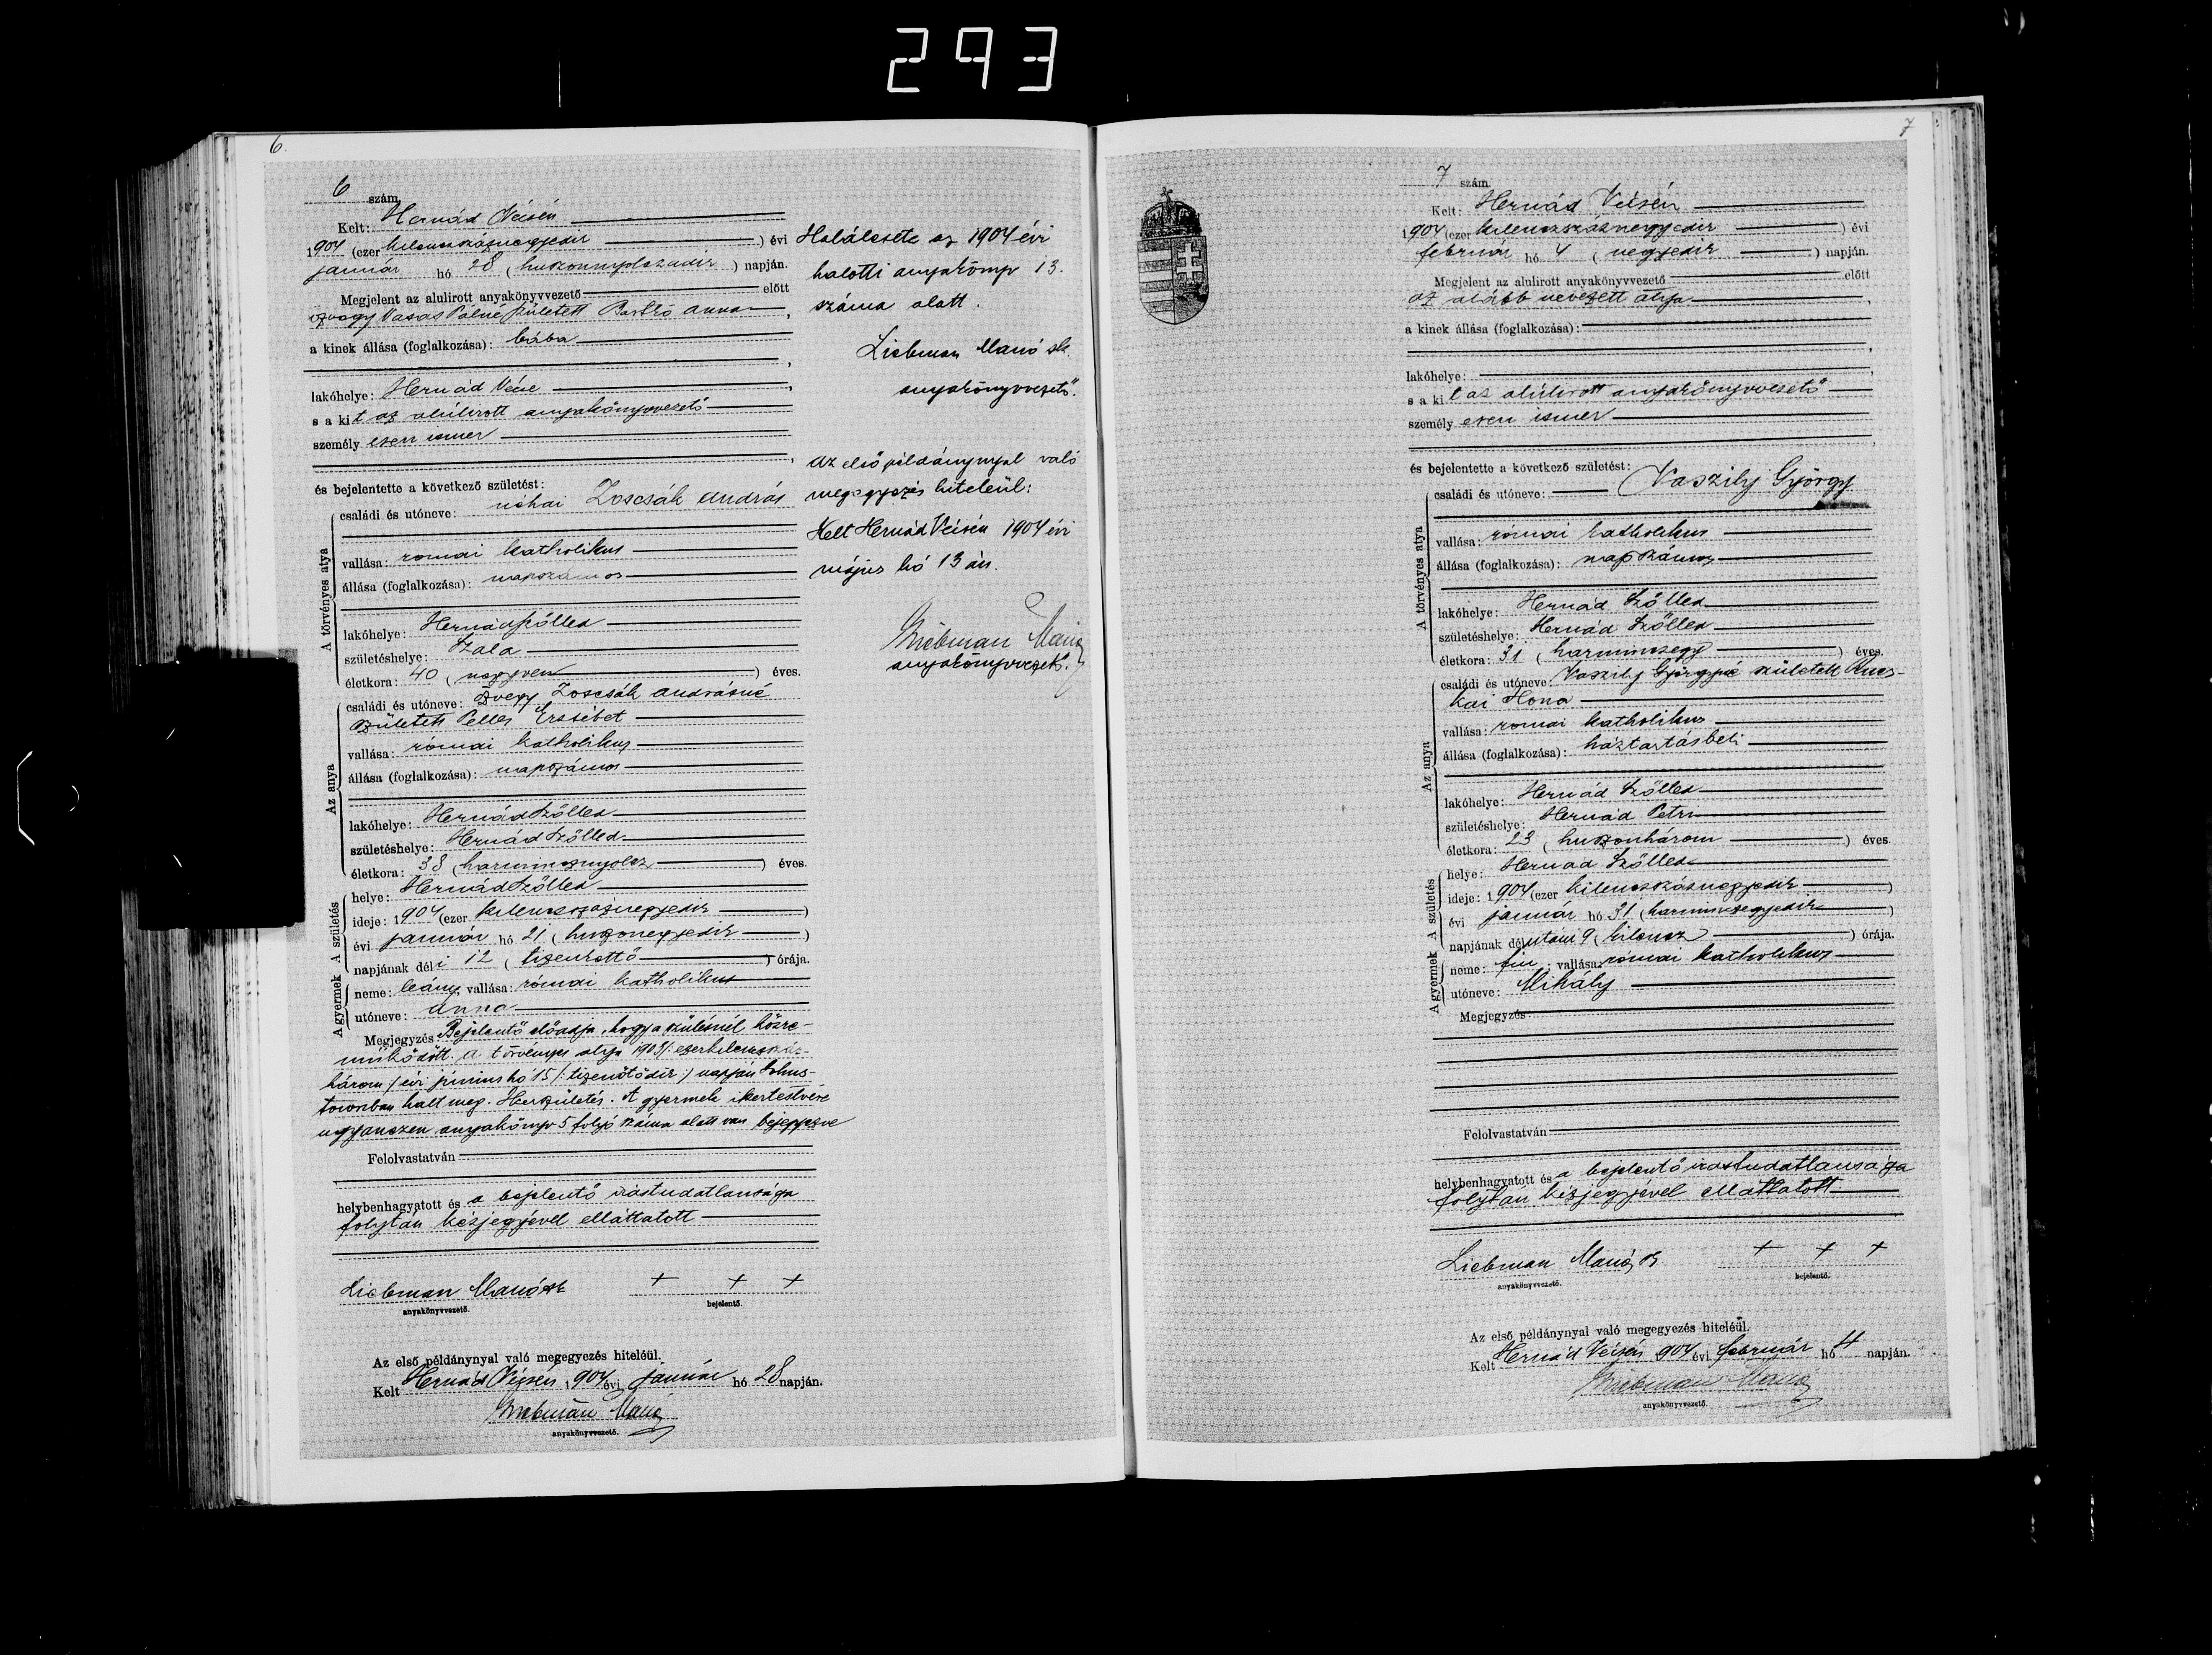 293
6.
6 szám.
Kelt: Hernád Vécsén
1904 (ezer kilenczszáznegyedik ) évi
január hó 28 (huszonnyolczadik ) napján.
Megjelent az alulirott anyakönyvvezető előtt
özvegy Vasas Pálné született anna,
a kinek állása (foglalkozása): bába
,
lakóhelye: Hernád Vécse,
s a kit az alulirott anyakönyvvezető
személyesen ismer
,
és bejelentette a következő születést:
A törvényes atya
családi és utóneve: néhai Zoscsák András
vallása: romai katholikus
állása (foglalkozása): napszámos
lakóhelye: Hernádszölled
születéshelye: Szala
életkora: 40 (negyven ) éves.
Az anya
családi és utóneve: özvegy Zoscsák andrásné
született Pelles Erzsébet
vallása: római katholikus
állása (foglalkozása): napszámos
lakóhelye: HernádSzölled
születéshelye: HernádSzölled
életkora: 38 (harmincznyolcz ) éves.
A születés
helye: HernádSzölled
ideje: 1904 (ezer kilenczszáznegyedik )
évi január hó 21 (huszonegyedik )
napjának déli 12 (tizenkettő ) órája.
A gyermek
neme: leány, vallása: római katholikus
utóneve: anna
Megjegyzés Bejelentő előadja, hogy a szülésnél közre-
működött. A törvényes atya 1903 /: ezerkilenczszáz-
három :/ évi június hó 15 /: tizenötödik :/ napján Johns-
townban halt meg. Ikerszületés. A gyermek ikertestvére
ugyanezen anyakönyv 5 folyó száma alatt van bejegyezve
Felolvastatván
helybenhagyatott és a bejelentő irástudatlansága
folytán kézjegyével elláttatott
Liebman Manó sk + + +
anyakönyvvezető. bejelentő.
Az első példánynyal való megegyezés hiteléül.
Kelt Hernád Vécsén, 1904 évi január hó 28 napján.
Liebman Manó
anyakönyvvezető.
Halálesete az 1904 évi
halotti anyakönyv 13.
száma alatt.
Liebman Manó sk.
anyakönyvvezető.
Az első példánynyal való
megegyezés hiteleül:
Kelt Hernád Vécsén 1904 évi
május hó 13 án.
Liebman Manó
anyakönyvvezető.
7
7 szám.
Kelt: Hernád Vécsén
1904 (ezer kilenczszáznegyedik ) évi
február hó 4 (negyedik ) napján.
Megjelent az alulirott anyakönyvvezető előtt
az alább nevezett atya,
a kinek állása (foglalkozása):
,
lakóhelye: ,
s a kit az alúlirott anyakönyvvezető
személyesen ismer
,
és bejelentette a következő születést:
A törvényes atya
családi és utóneve: Vaszily György
vallása: római katholikus
állása (foglalkozása): napszámos
lakóhelye: Hernád Szölled
születéshelye: Hernád Szölled
életkora: 31 (harminczegy ) éves.
Az anya
családi és utóneve: Vaszily Györgyné született
kai Ilona
vallása: romai katholikus
állása (foglalkozása): háztartásbeli
lakóhelye: Hernád Szölled
születéshelye: Hernád Petri
életkora: 23 (huszonhárom ) éves.
A születés
helye: Hernád Szölled
ideje: 1904 (ezer kilenczszáznegyedik )
évi január hó 31 (harminczegyedik )
napjának délutáni 9 (kilencz ) órája.
A gyermek
neme: fiu, vallása: római katholikus
utóneve: Mihály
Megjegyzés:
Felolvastatván
helybenhagyatott és a bejelentő irástudatlansága
folytán kézjegyével elláttatott
Liebman Manó sk + + +
anyakönyvvezető. bejelentő.
Az első példánynyal való megegyezés hiteléül.
Kelt Hernád Vécsén 1904 évi február hó 4 napján.
Liebman Manó
anyakönyvvezető.